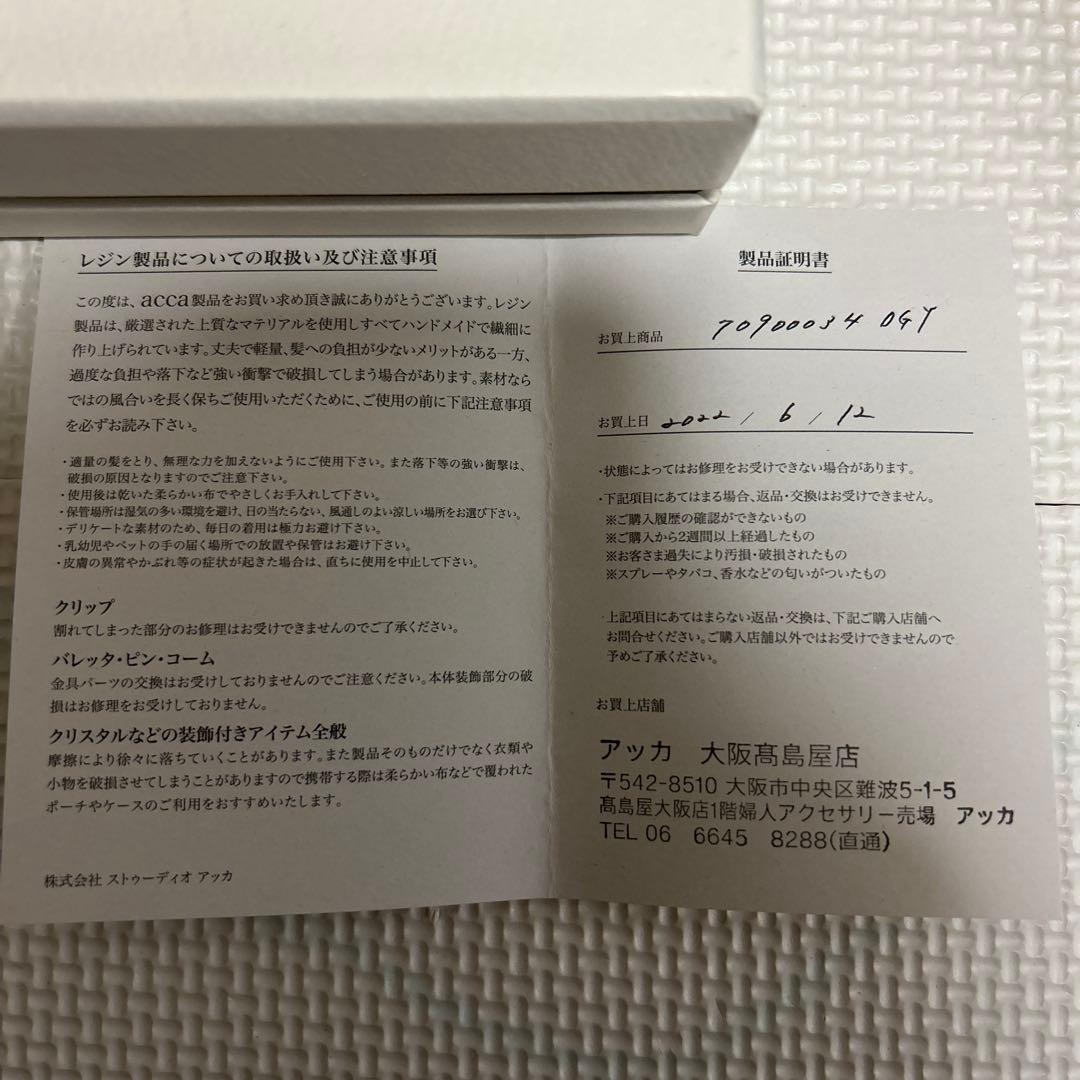 レジン製品についての取扱い及び注意事項
この度は、acca製品をお買い求め頂き誠にありがとうございます。レジン
製品は、厳選された上質なマテリアルを使用しすべてハンドメイドで繊細に
作り上げられています。丈夫で軽量、髪への負担が少ないメリットがある一方、
過度な負担や落下など強い衝撃で破損してしまう場合があります。素材なら
ではの風合いを長く保ちご使用いただくために、ご使用の前に下記注意事項
を必ずお読み下さい。
・適量の髪をとり、無理な力を加えないようにご使用下さい。また落下等の強い衝撃は、
破損の原因となりますのでご注意下さい。
・使用後は乾いた柔らかい布でやさしくお手入れして下さい。
・保管場所は湿気の多い環境を避け、日の当たらない、風通しのよい涼しい場所をお選び下さい。
・デリケートな素材のため、毎日の着用は極力お避け下さい。
・乳幼児やペットの手の届く場所での放置や保管はお避け下さい。
・皮膚の異常やかぶれ等の症状が起きた場合は、直ちに使用を中止して下さい。
クリップ
割れてしまった部分のお修理はお受けできませんのでご了承ください。
バレッタ・ピン・コーム
金具パーツの交換はお受けしておりませんのでご注意ください。本体装飾部分の破
損はお修理をお受けしておりません。
クリスタルなどの装飾付きアイテム全般
摩擦により徐々に落ちていくことがあります。また製品そのものだけでなく衣類や
小物を破損させてしまうことがありますので携帯する際は柔らかい布などで覆われた
ポーチやケースのご利用をおすすめいたします。
株式会社 ストゥーディオ アッカ
製品証明書
お買上商品 70900034 DGY
お買上日 2022 / 6 / 12
・状態によってはお修理をお受けできない場合があります。
・下記項目にあてはまる場合、返品・交換はお受けできません。
※ご購入履歴の確認ができないもの
※ご購入から2週間以上経過したもの
※お客さま過失により汚損・破損されたもの
※スプレーやタバコ、香水などの匂いがついたもの
上記項目にあてはまらない返品・交換は、下記ご購入店舗へ
お問合せください。ご購入店舗以外ではお受けできませんので
予めご了承ください。
お買上店舗
アッカ 大阪髙島屋店
〒542-8510 大阪市中央区難波5-1-5
髙島屋大阪店1階婦人アクセサリー売場 アッカ
TEL 06 6645 8288(直通)